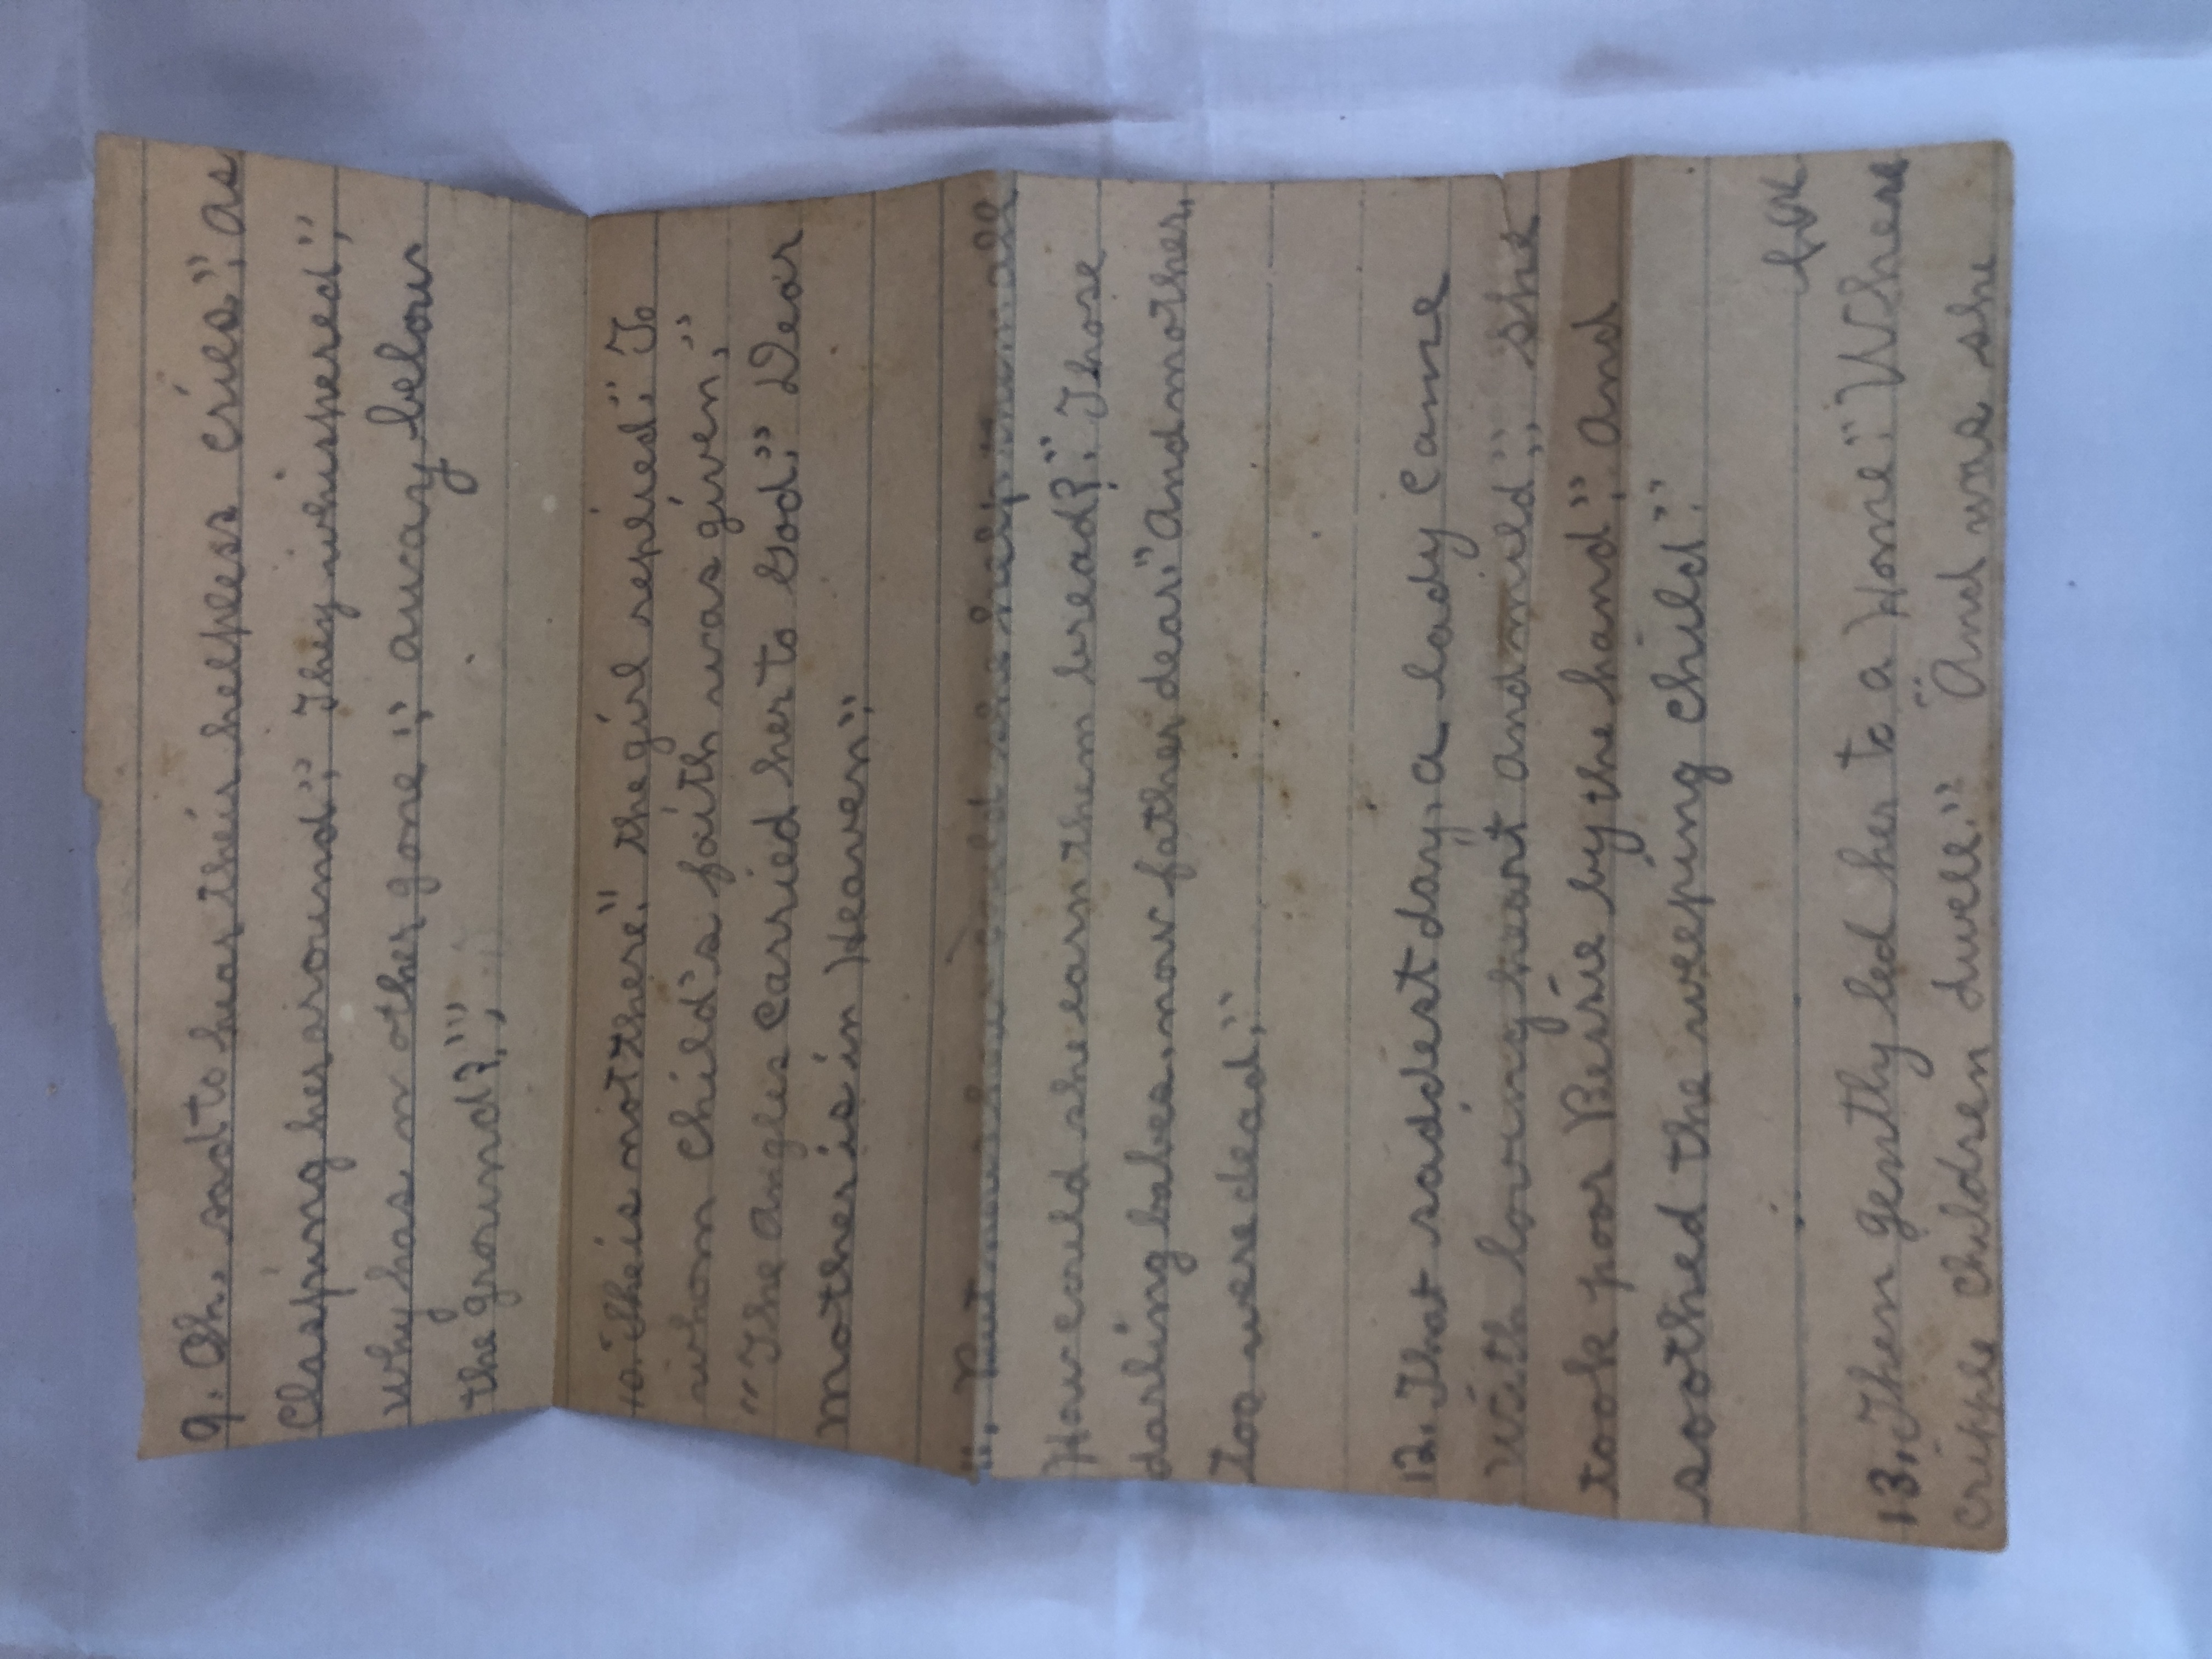 9. Oh, sad to hear their helpless cries"; as
Clasping her around"; They whispered";
why has mother gone "; away below
the ground?";
10. "She is not there." the girl replied; To
whom Child's faith was given;"
"The Angles Carried her to God;" Dear
Mother is in Heaven";
11. But now how could she help them all
How could she earn them bread?;" Those
darling babes, now father dear;" And mother,
too were dead;"
12. That saddest day, a lady Came
With loving heart and mild"; She
took poor Bessie by the hand"; And
soothed the weeping Child."
13. Then gently led her to a Home;" Where
cripple Children dwell." "And was she